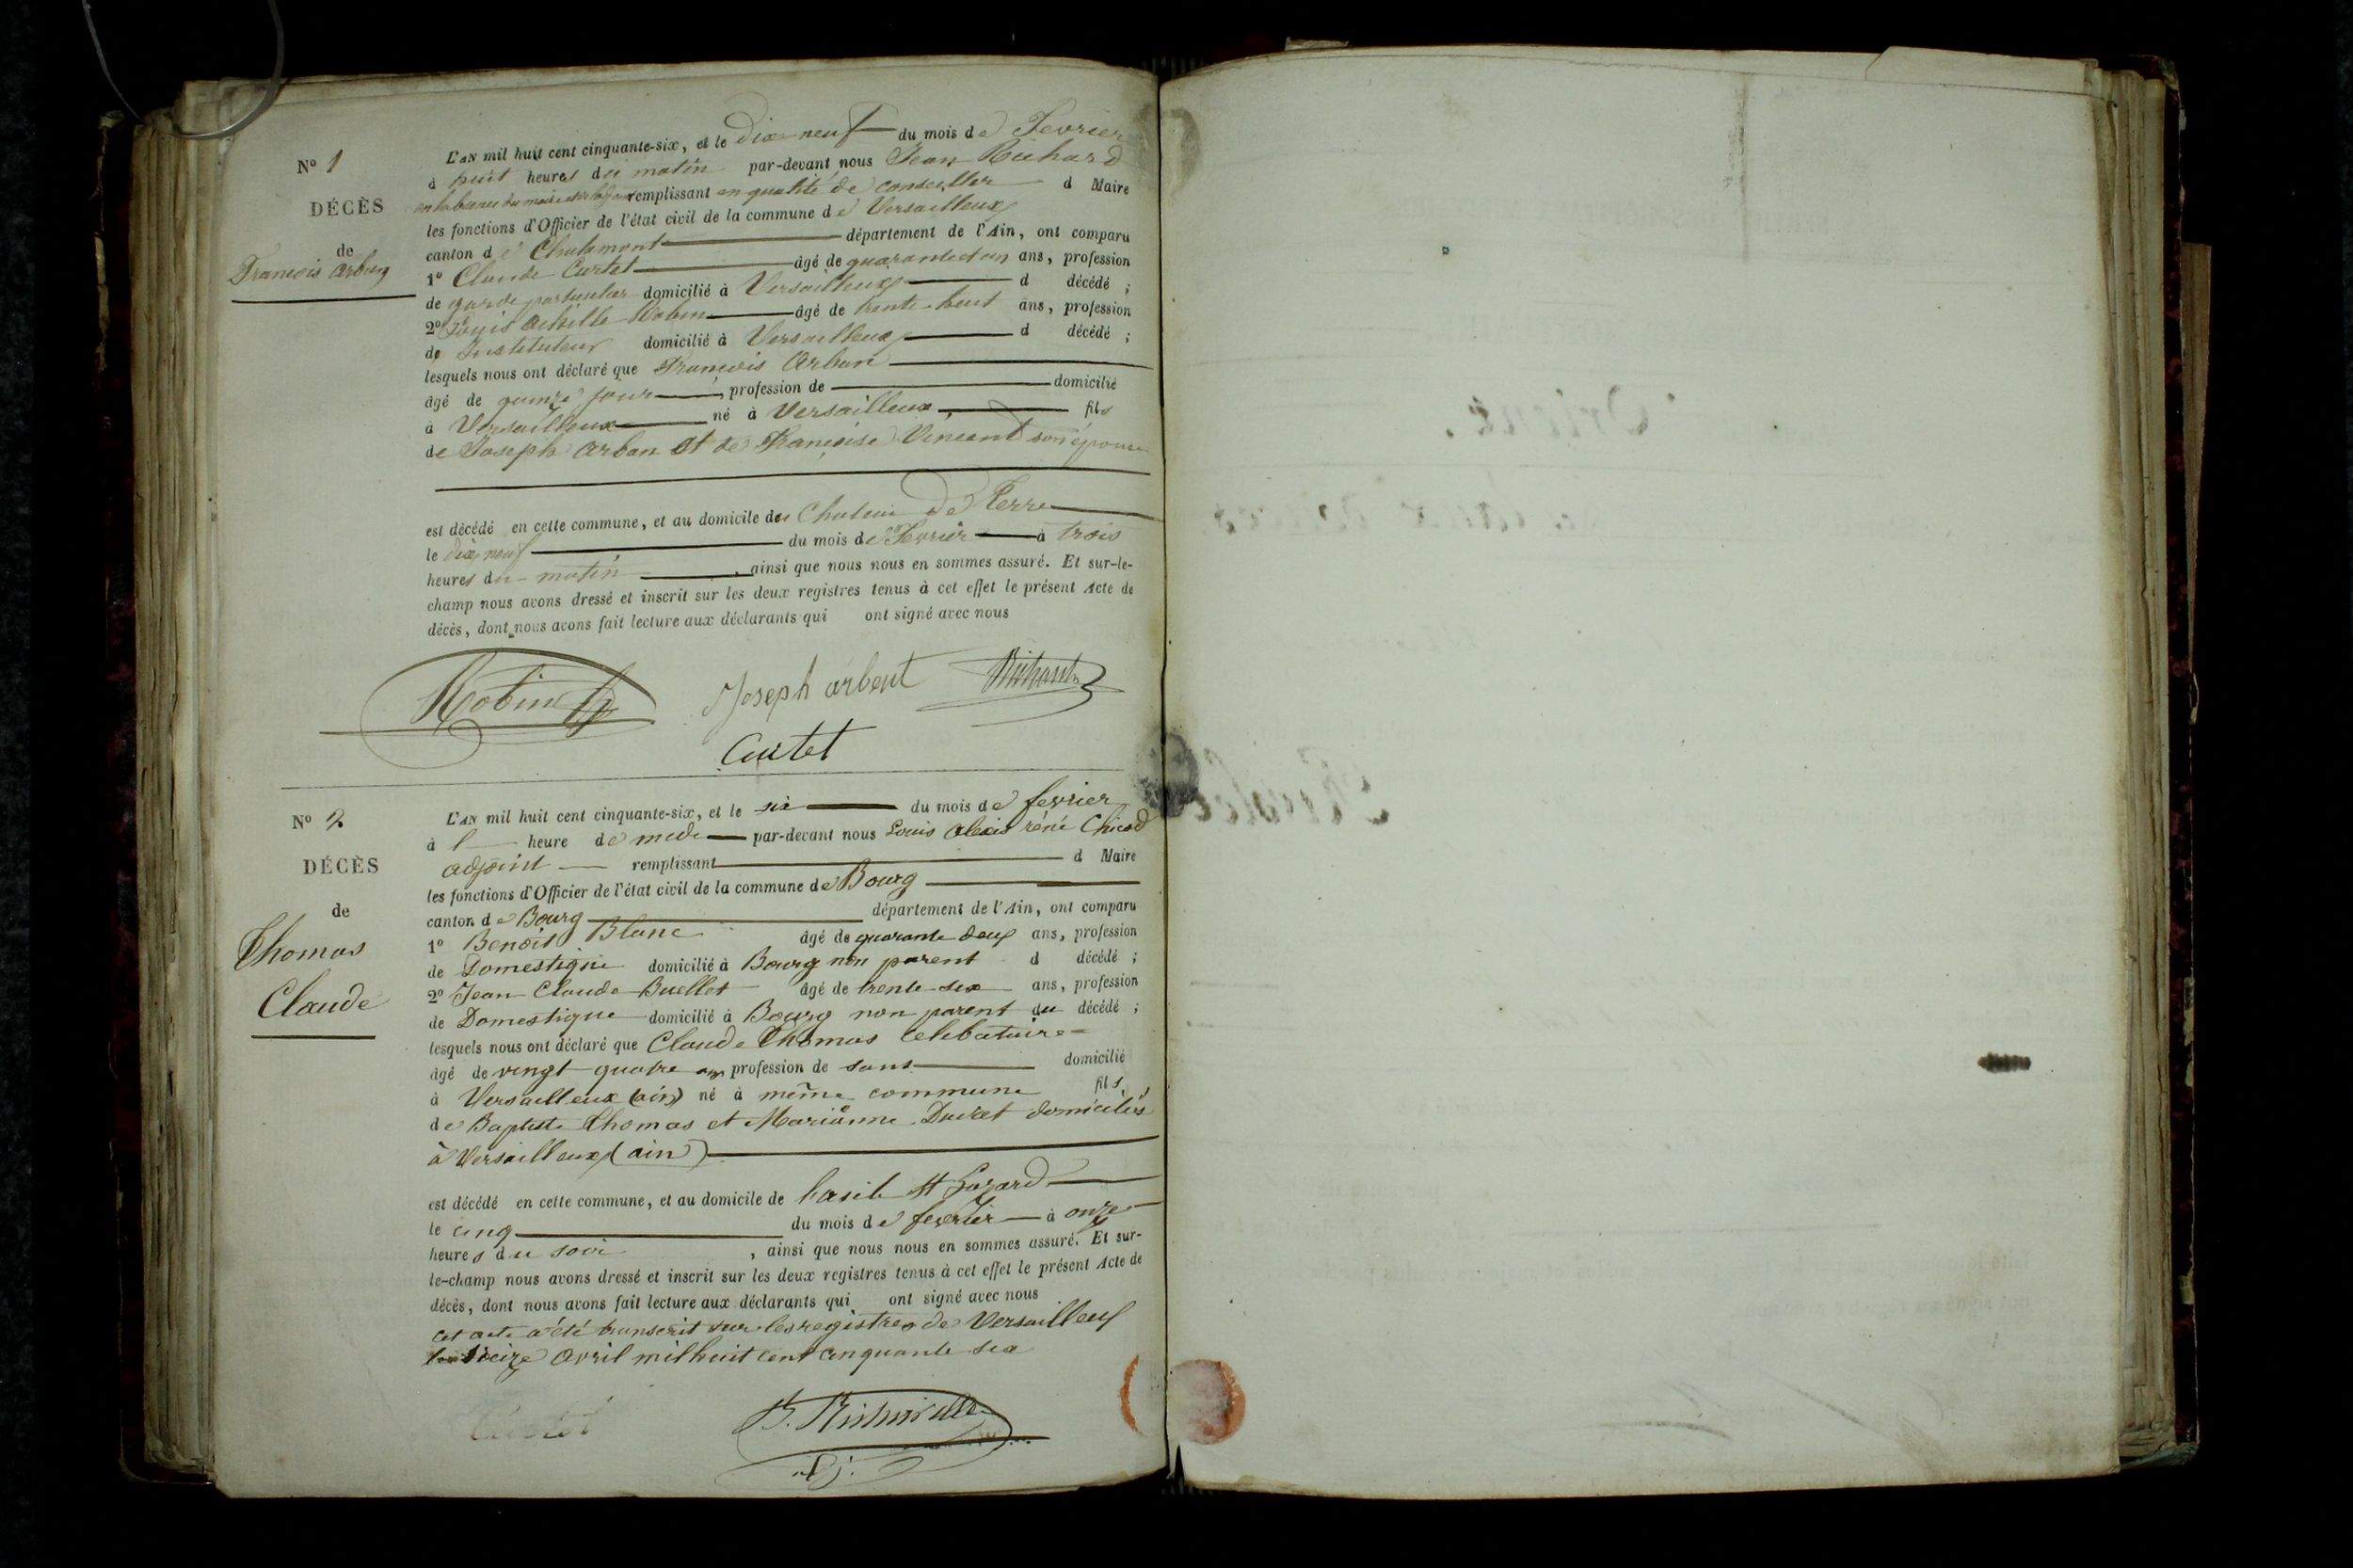 No 1
DÉCÈS
de
Francois Arban
L'AN mil huit cent cinquante-six, et le Dix neuf du mois de Fevrier
à huit heures du matin par-devant nous Jean Richard
remplissant en qualité de conseiller d Maire
les fonctions d'Officier de l'état civil de la commune de Versailleux
canton de Chalamont département de l'Ain, ont comparu
1o Claude Curtet âgé de quarante et un ans, profession
de garde particulier domicilié à Versailleux d décédé ;
2o Louis Achille Robin âgé de trente huit ans, profession
de Instituteur domicilié à Versailleux d décédé ;
lesquels nous ont déclaré que Francois Arban
âgé de quinze jour, profession de domicilié
à Versailleux né à Versailleux, fils
de Joseph Arban et de Francoise Vincent son épouse
est décédé en cette commune, et au domicile des Chateau De Perre
le dix neuf du mois de Fevrier à trois
heures du matin, ainsi que nous nous en sommes assuré. Et sur-le-
champ nous avons dressé et inscrit sur les deux registres tenus à cet effet le présent Acte de
décès, dont nous avons fait lecture aux déclarants qui ont signé avec nous
Robin Joseph arbent Richard
Curtet
No 2
DÉCÈS
de
Thomas
Claude
L'AN mil huit cent cinquante-six, et le six du mois de fevrier
à l heure de midi par-devant nous Louis Alexis réné Chicod
adjoint remplissant d Maire
les fonctions d'Officier de l'état civil de la commune de Bourg
canton de Bourg département de l'Ain, ont comparu
1o Benoit Blanc âgé de quarante deux ans, profession
de Domestique domicilié à Bourg non parent d décédé ;
2o Jean Claude Buellet âgé de trente six ans, profession
de Domestique domicilié à Bourg non parent du décédé ;
lesquels nous ont déclaré que Claude Thomas Celibataire
âgé de vingt quatre ans profession de sans domicilié
à Versailleux (ain) né à même commune fils
de Baptiste Thomas et Marianne Ducret domiciliés
à Versailleux (ain)
est décédé en cette commune, et au domicile de l'asile St Lazard
le cinq du mois de fevrier à onze
heures du soir, ainsi que nous nous en sommes assuré. Et sur-
le-champ nous avons dressé et inscrit sur les deux registres tenus à cet effet le présent Acte de
décès, dont nous avons fait lecture aux déclarants qui ont signé avec nous
cet acte a été transcrit sur les registres de Versailleux
seize avril mil huit cent cinquante six